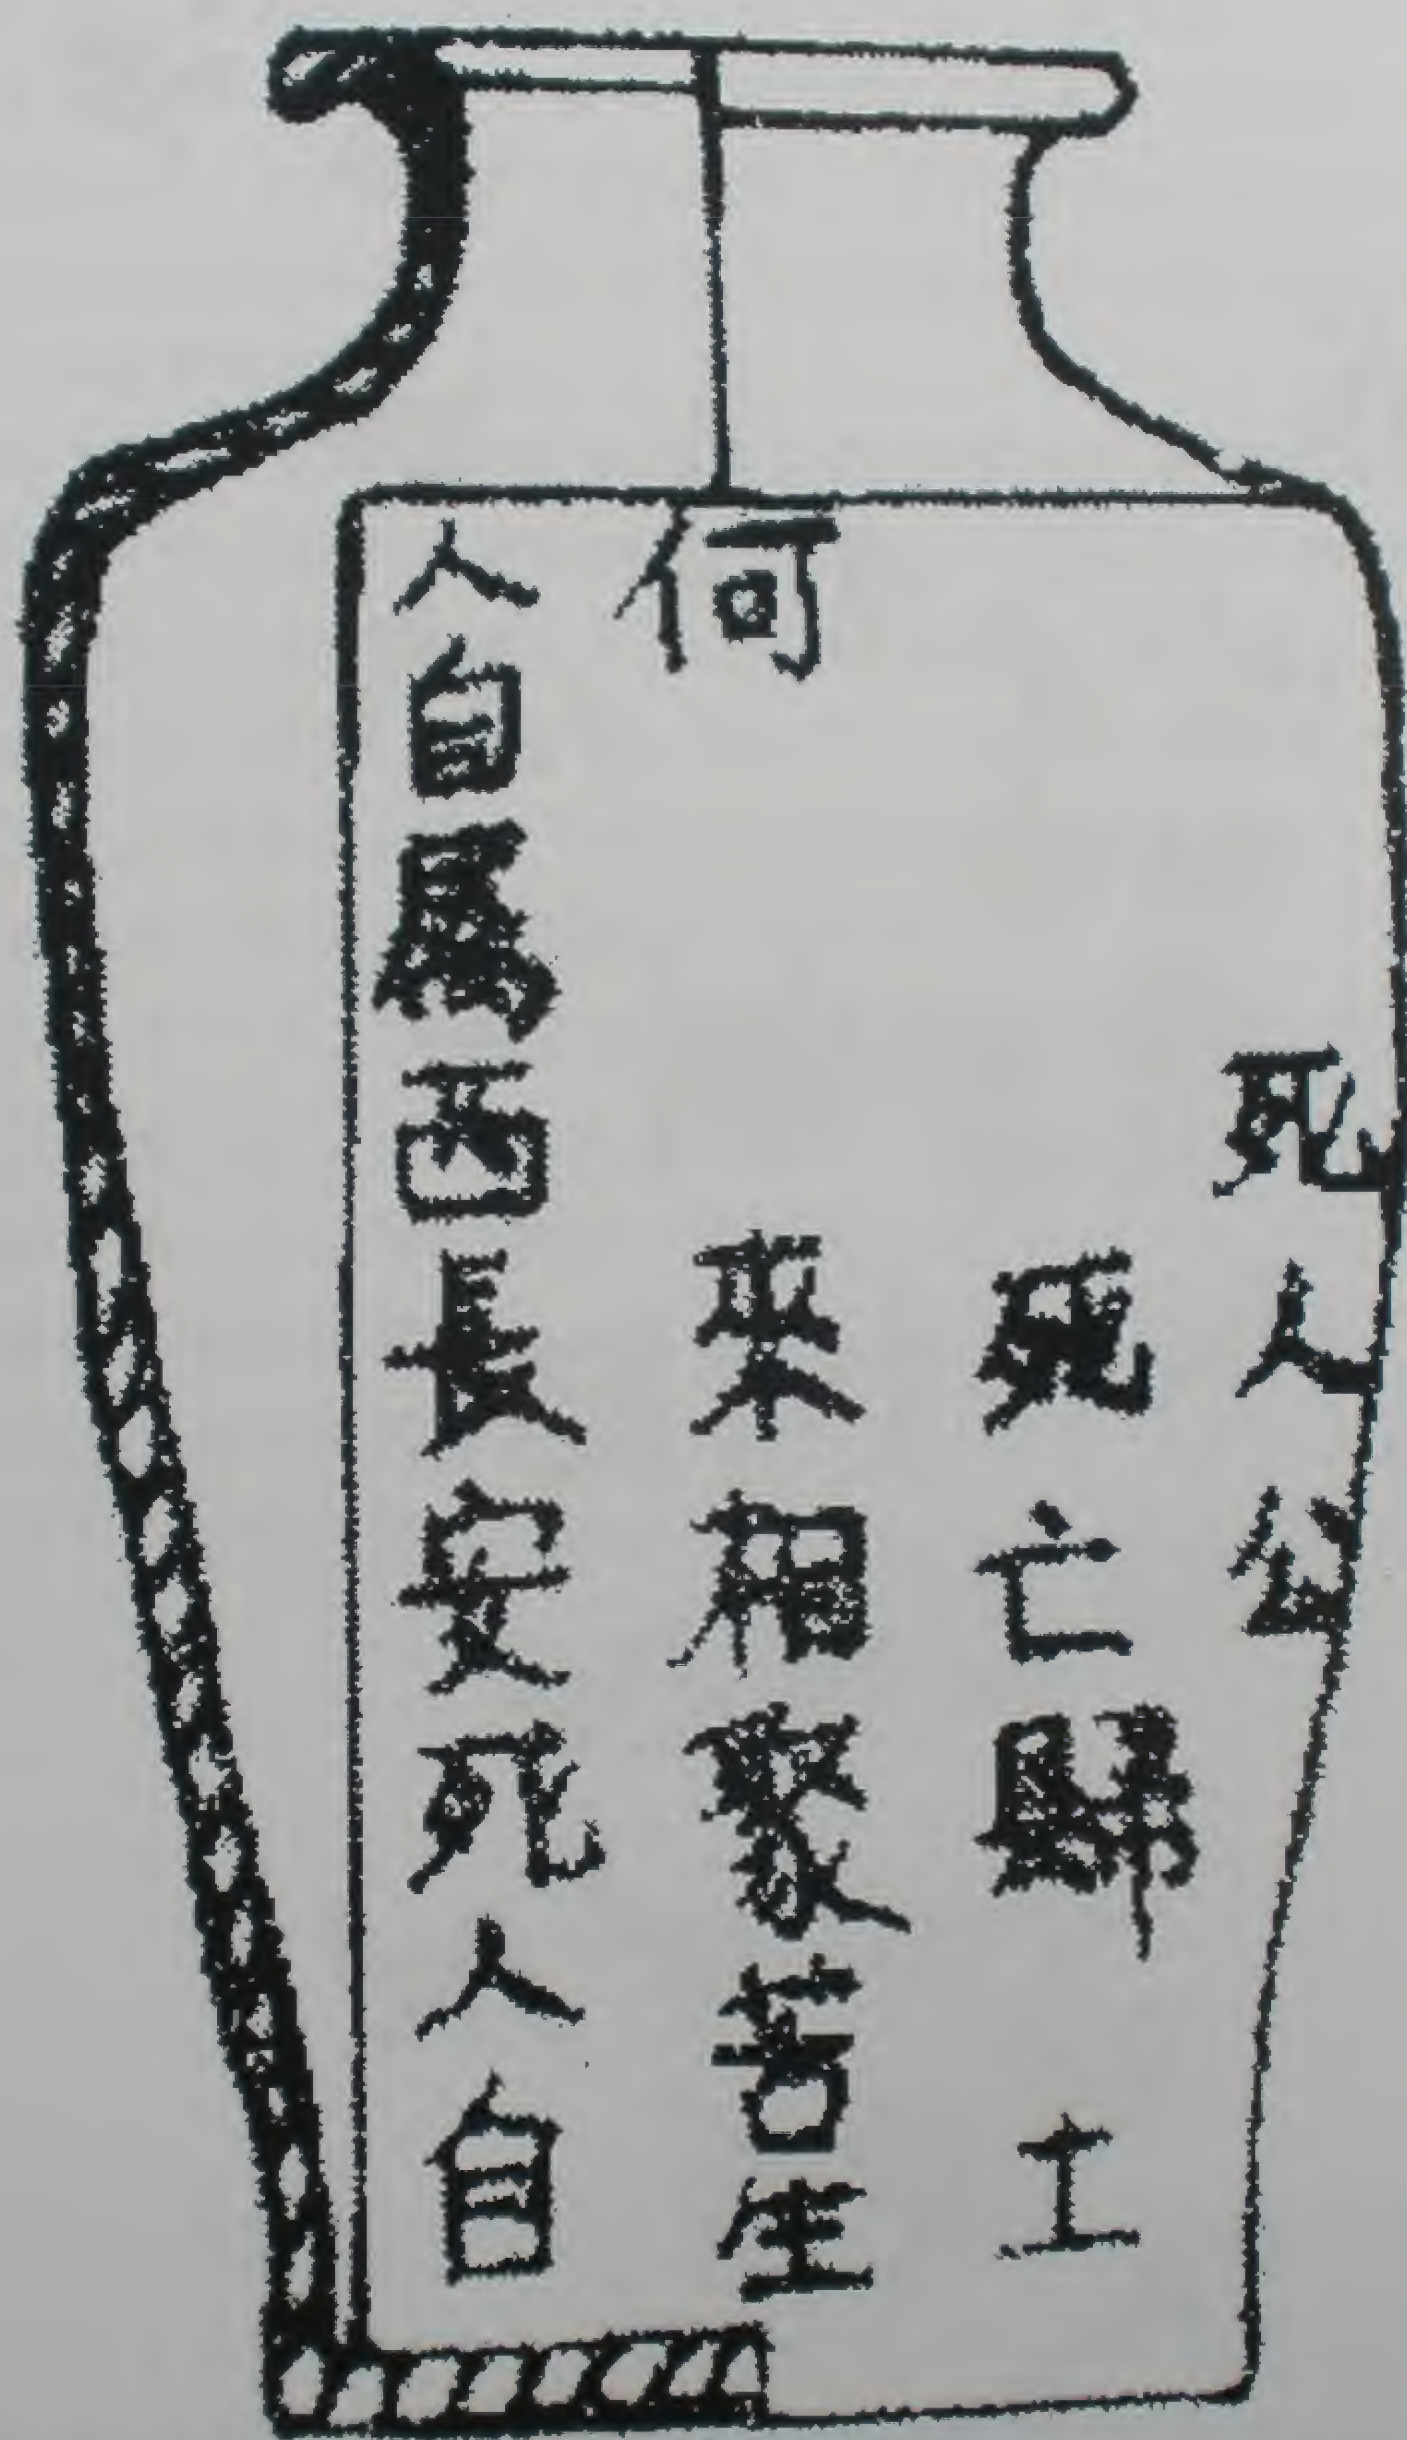 死人
死亡歸土
何來相聚苦生
人自屬西長安死人自